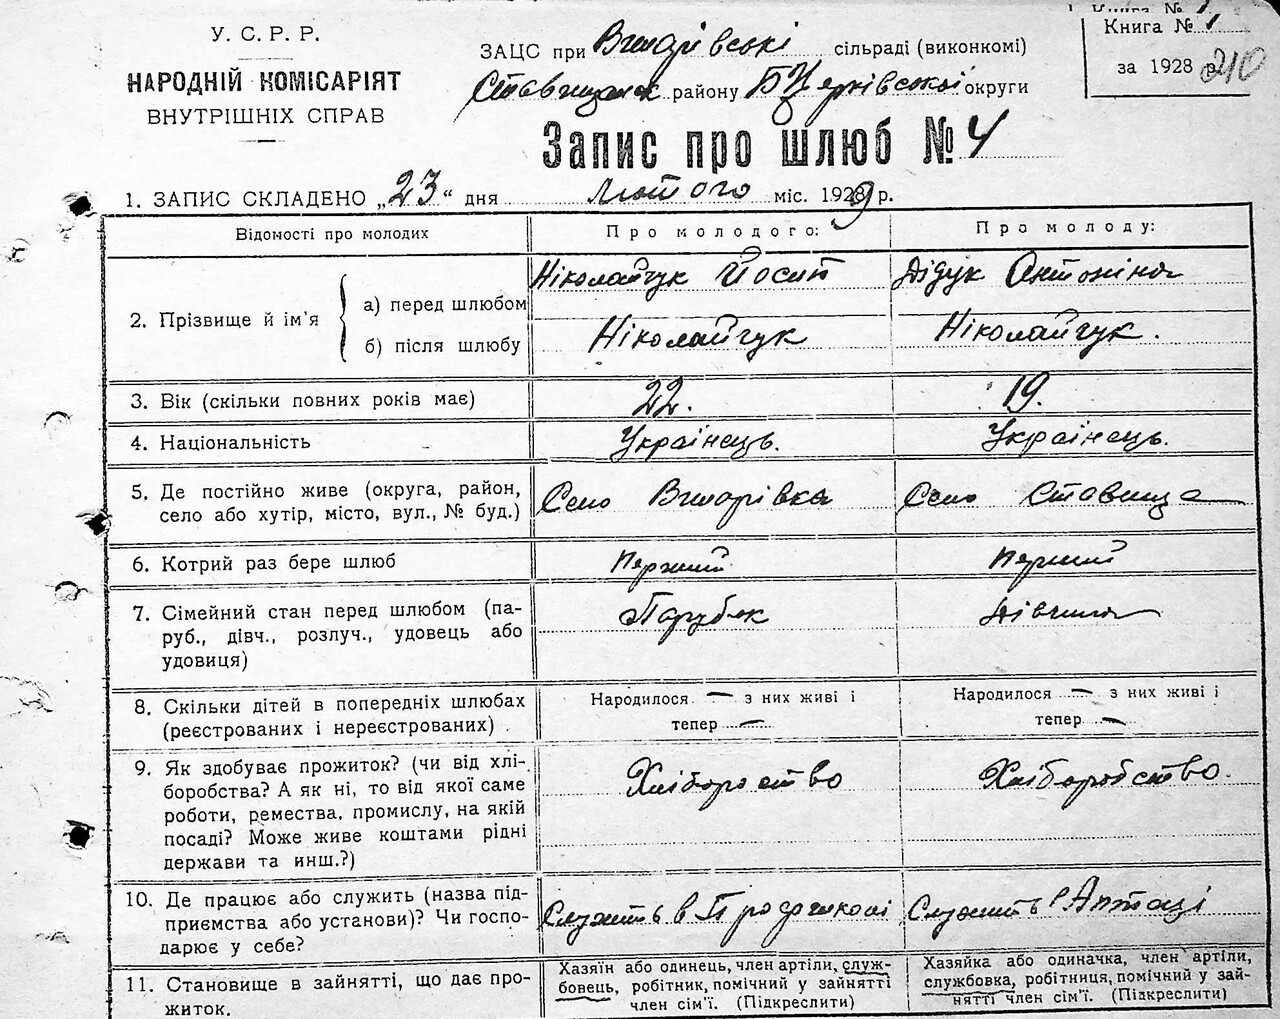 У. С. Р. Р.
НАРОДНІЙ КОМІСАРІЯТ
ВНУТРІШНІХ СПРАВ
ЗАЦС при сільраді (виконкомі)
району Б Церківської округи
Книга № 1
за 1928 р. 210
Запис про шлюб № 4
1. ЗАПИС СКЛАДЕНО „23“ дня лютого міс. 1929 р.
Відомості про молодих
Про молодого:
Про молоду:
2. Прізвище й ім'я
а) перед шлюбом
Ніколайчук Йосип
Дідук Антоніна
б) після шлюбу
Ніколайчук
Ніколайчук.
3. Вік (скільки повних років має)
22.
19.
4. Національність
Українець.
Українець.
5. Де постійно живе (округа, район,
село або хутір, місто, вул., № буд.)
Село
Село Ставища
6. Котрий раз бере шлюб
Перший
Перший
7. Сімейний стан перед шлюбом (па-
руб., дівч., розлуч., удовець або
удовиця)
Парубок
Дівчина
8. Скільки дітей в попередніх шлюбах
(реєстрованих і нереєстрованих) .
Народилося — з них живі і
тепер —
Народилося — з них живі і
тепер —
9. Як здобуває прожиток? (чи від хлі-
боробства? А як ні, то від якої саме
роботи, ремества, промислу, на якій
посаді? Може живе коштами рідні
держави та инш.?)
Хліборобство
Хліборобство.
10. Де працює або служить (назва під-
приємства або установи)? Чи госпо-
дарює у себе?
Служить в Профшколі
Служить в Аптеці
11. Становище в зайнятті, що дає про-
житок.
Хазяїн або одинець, член артіли, служ-
бовець, робітник, помічний у зайнятті
член сім'ї. (Підкреслити)
Хазяйка або одиначка, член артіли,
службовка, робітниця, помічний у зай-
нятті член сім'ї. (Підкреслити)